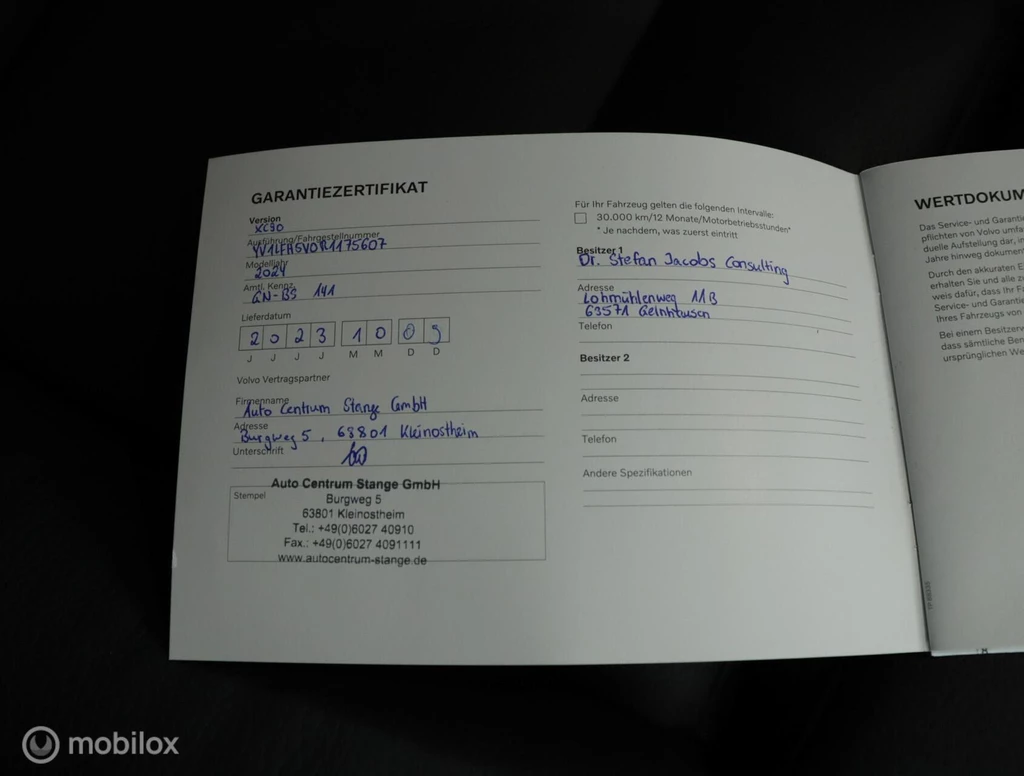 GARANTIEZERTIFIKAT
Version
XC90
Ausführung/Fahrgestellnummer
YV1LFH5V0R1175607
Modelljahr
2024
Amtl. Kennz.
GN-BS 141
Lieferdatum
2 0 2 3 1 0 0 9
J J J J M M D D
Volvo Vertragspartner
Firmenname
Auto Centrum Stange GmbH
Adresse
Burgweg 5, 63801 Kleinostheim
Unterschrift
Stempel
Auto Centrum Stange GmbH
Burgweg 5
63801 Kleinostheim
Tel.: +49(0)6027 40910
Fax.: +49(0)6027 4091111
www.autocentrum-stange.de
Für Ihr Fahrzeug gelten die folgenden Intervalle:
30.000 km/12 Monate/Motorbetriebsstunden*
* Je nachdem, was zuerst eintritt
Besitzer 1
Dr. Stefan Jacobs Consulting
Adresse
Lohmühlenweg 11B
63571 Gelnhausen
Telefon
Besitzer 2
Adresse
Telefon
Andere Spezifikationen
WERTDOKUM
Das Service- und Garantie
pflichten von Volvo umfa
duelle Aufstellung dar, in
Jahre hinweg dokumen
Durch den akkuraten E
erhalten Sie und alle z
weis dafür, dass Ihr Fa
Service- und Garantie
Ihres Fahrzeugs von
Bei einem Besitzerw
dass sämtliche Ben
ursprünglichen We
mobilox